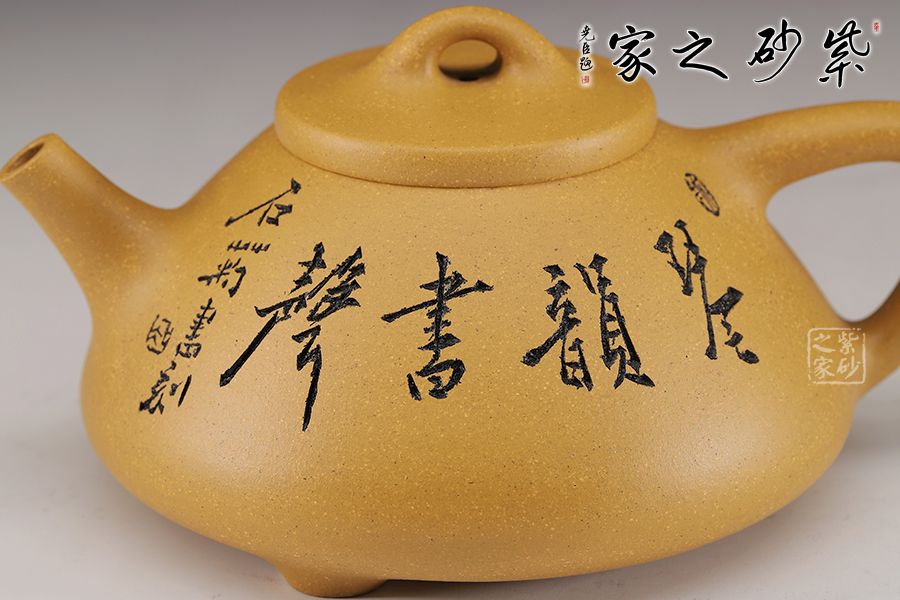 紫砂之家
堯臣題
琴韻書聲
石書刻
紫砂之家